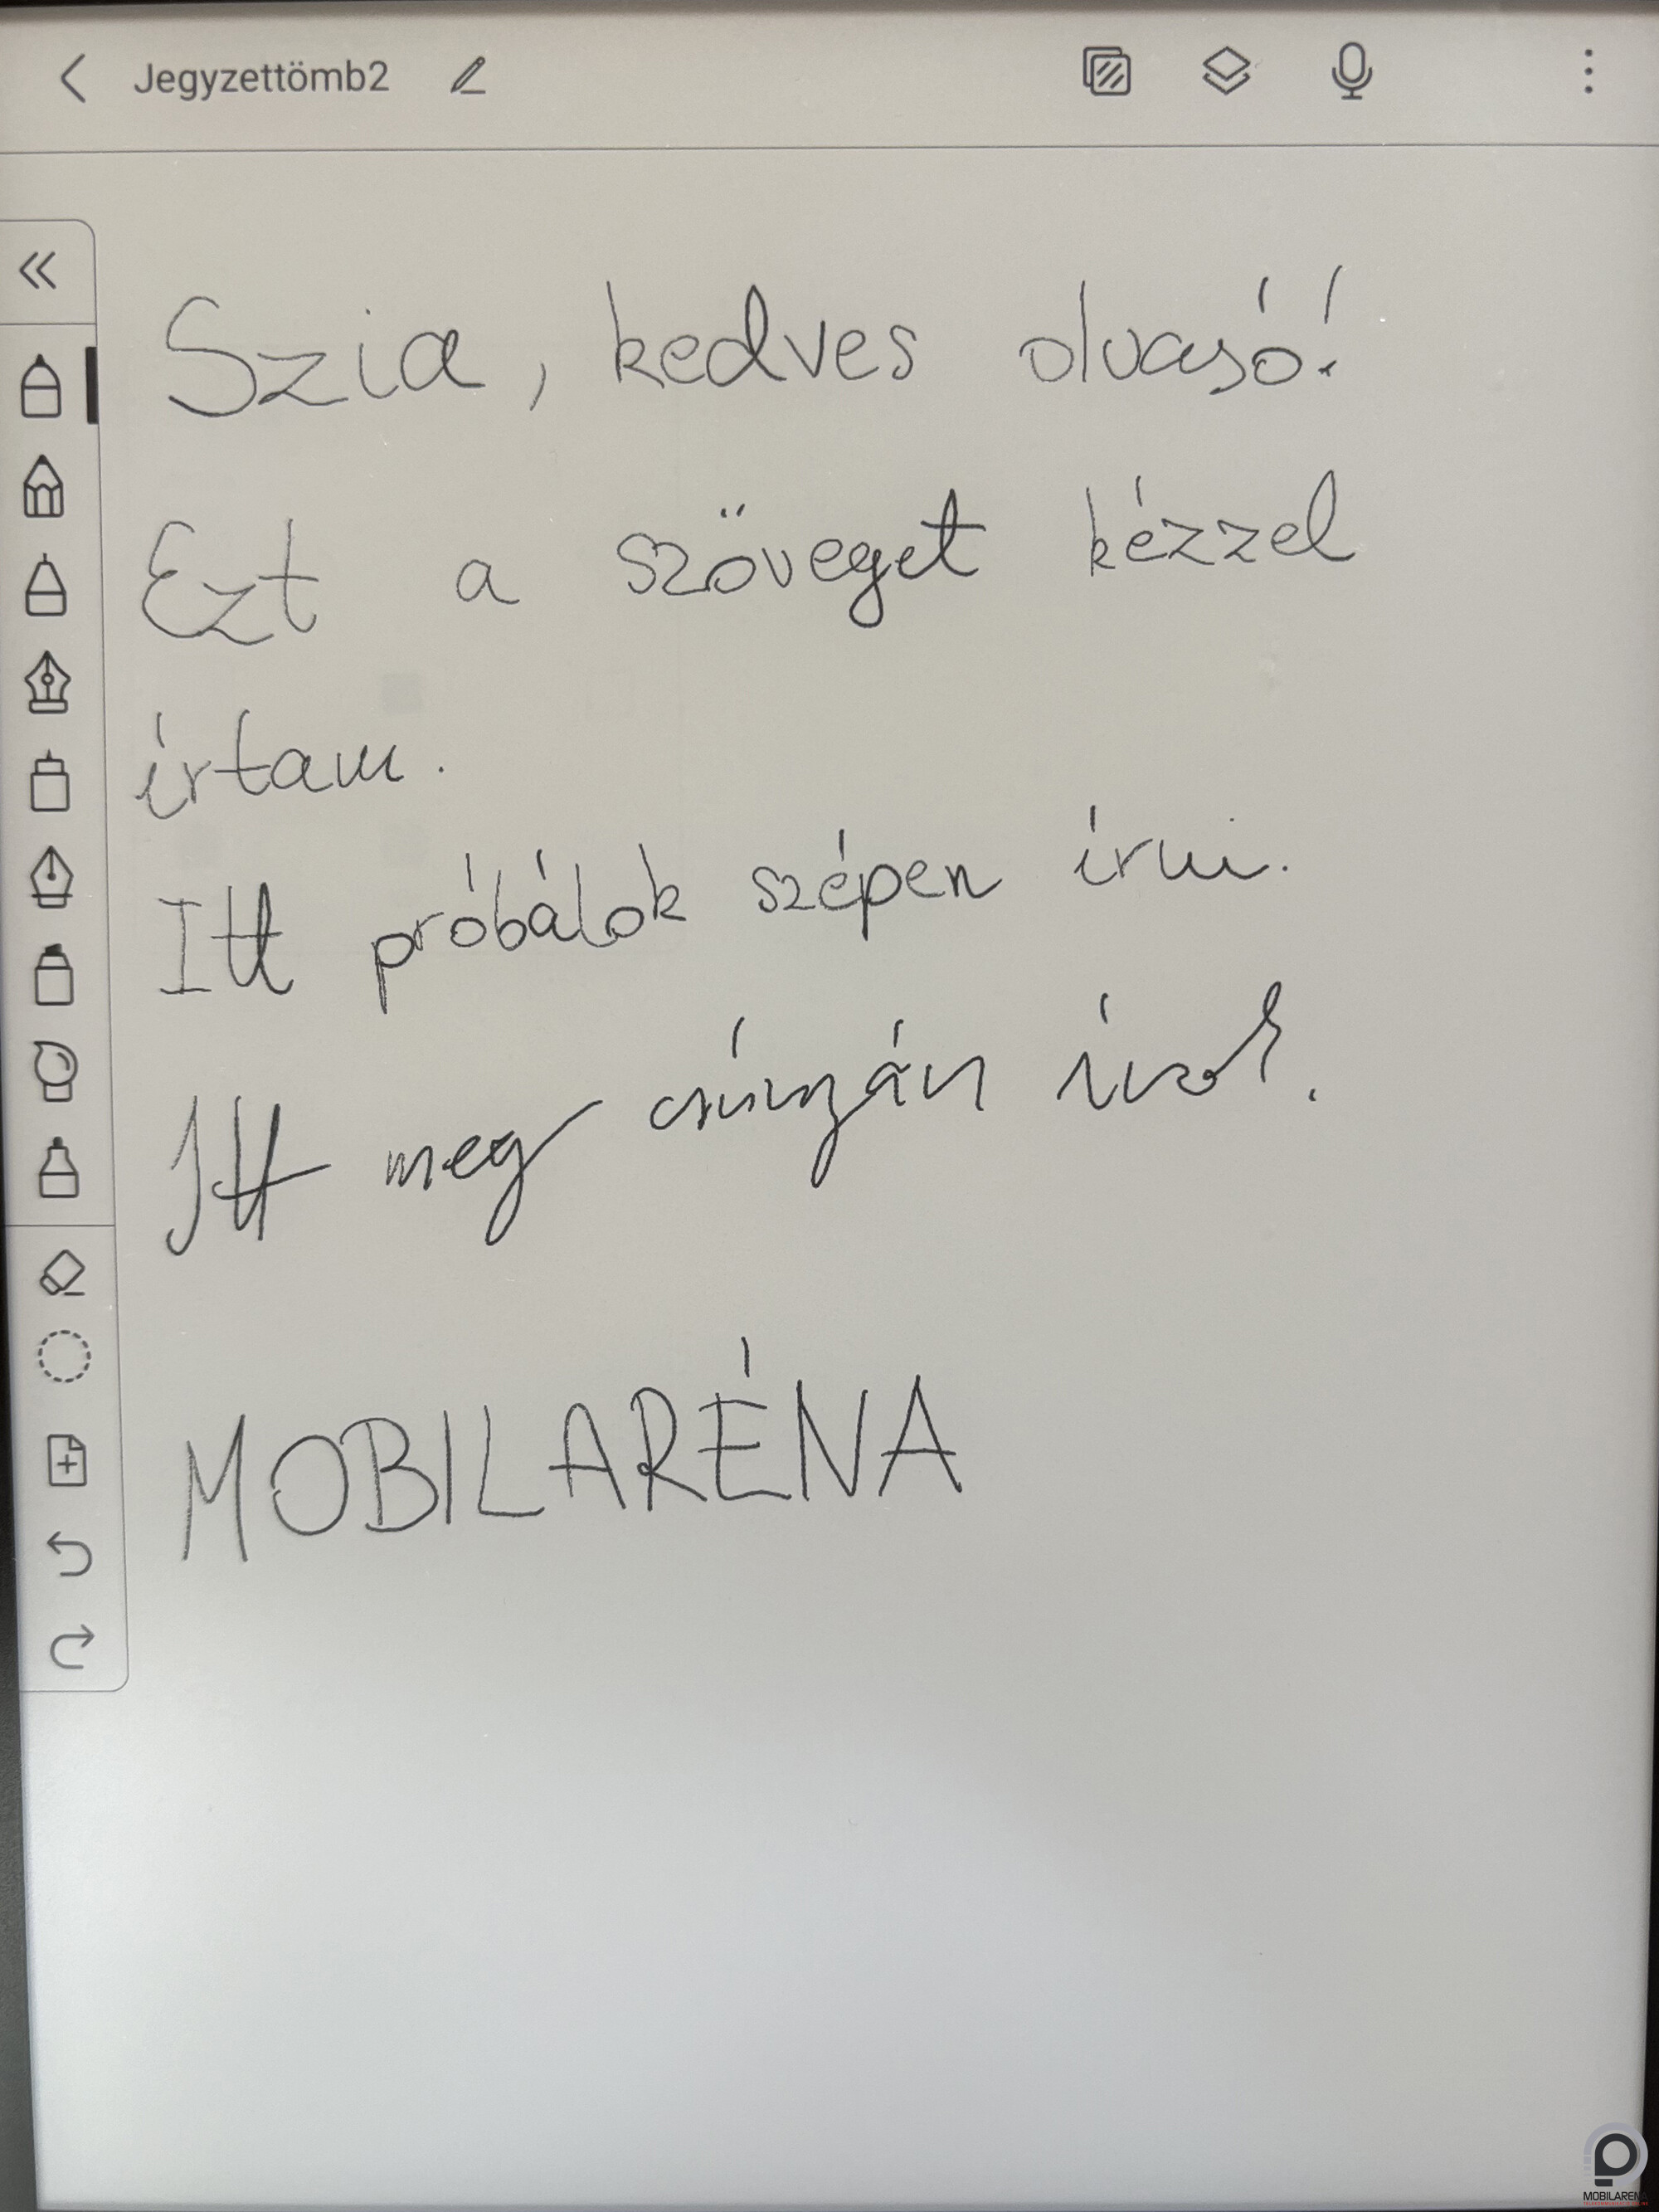 Jegyzettömb2
Szia, kedves olvasó!
Ezt a szöveget kézzel
írtam.
Itt próbálok szépen írni.
Itt meg csúnyán írok.
MOBILARÉNA
MOBILARENA